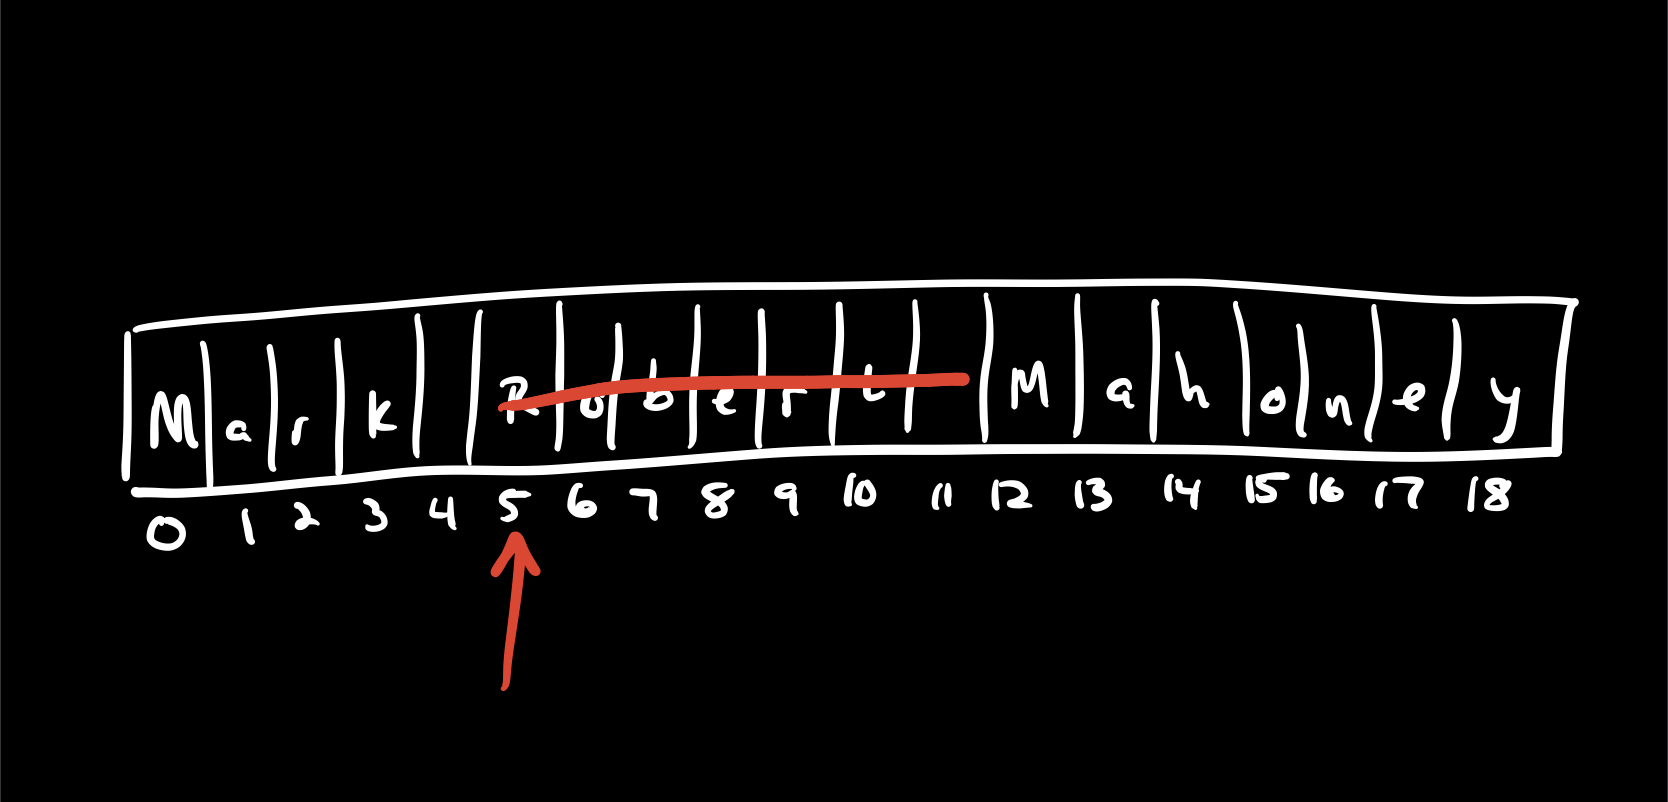 Mark Robert Mahoney
0 1 2 3 4 5 6 7 8 9 10 11 12 13 14 15 16 17 18